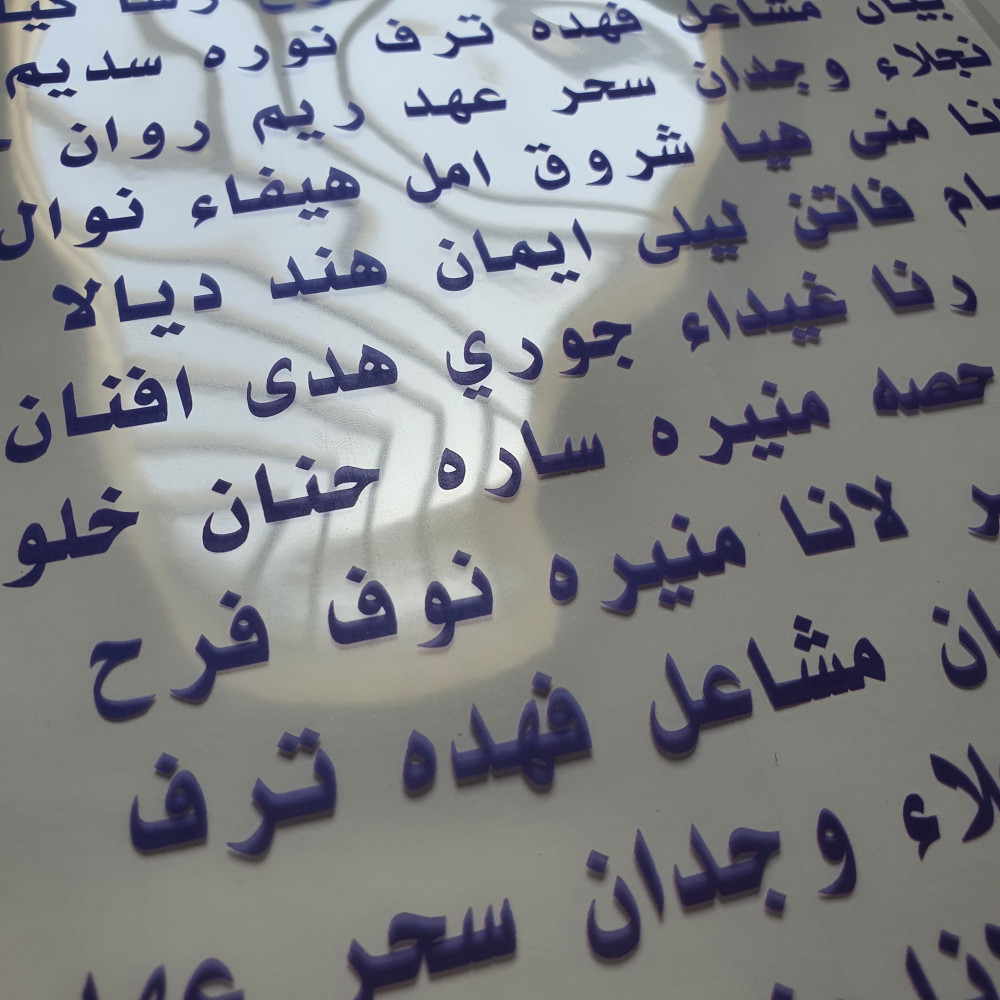 بيان مشاعل فهده ترف نوره سديم
نجلاء وجدان سحر عهد ريم روان
منى هيا شروق امل هيفاء نوال
فاتن ليلى ايمان هند ديالا
رنا غيداء جوري هدى افنان
حصه منيره ساره حنان خلو
لانا منيره نوف فرح
مشاعل فهده ترف
وجدان سحر عهد